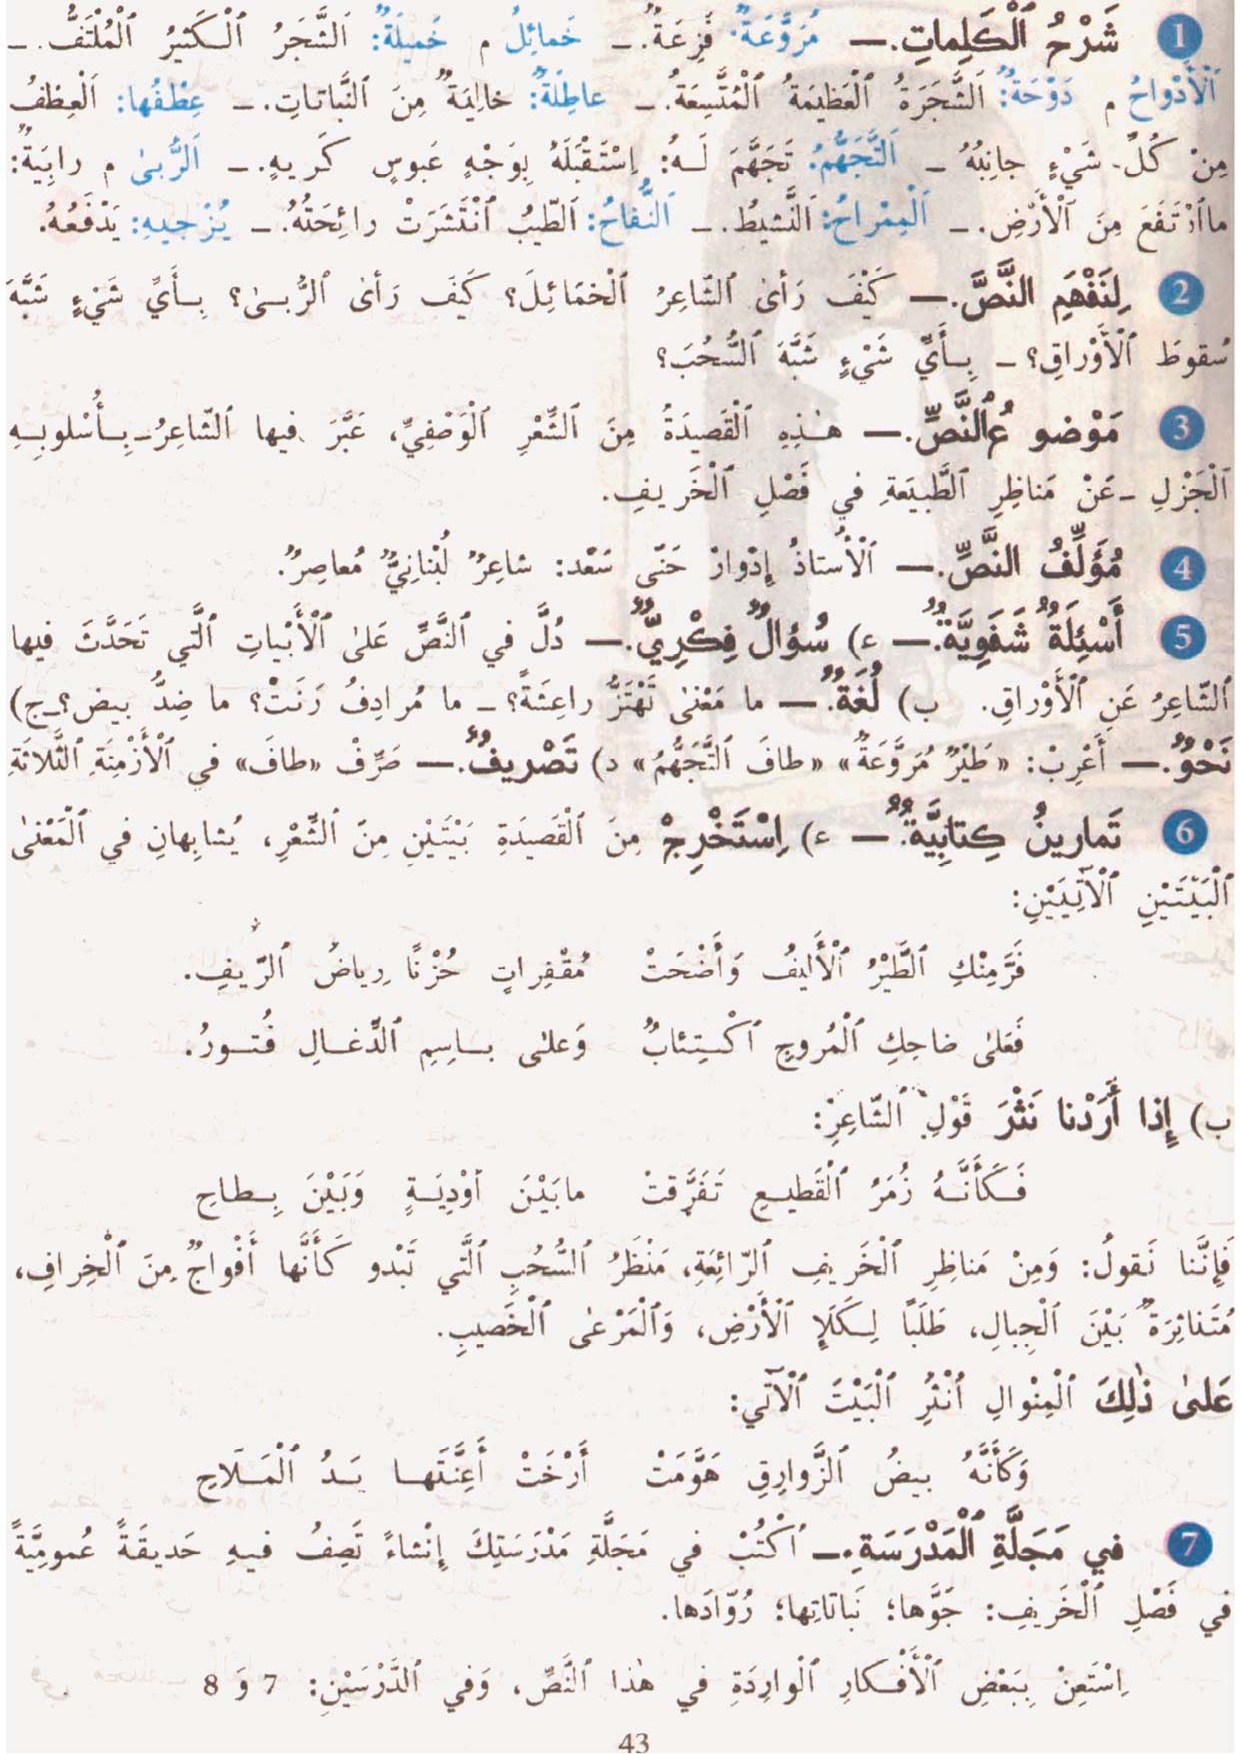 1 شَرْحُ ٱلْكَلِماتِ.— مُرَوَّعَةٌ: فَزِعَةٌ. – خَمائِلُ م خَميلَةٌ: اَلشَّجَرُ ٱلْكَثيرُ ٱلْمُلْتَفُّ. –
اَلْأَدْواحُ م دَوْحَةٌ: اَلشَّجَرَةُ ٱلْعَظيمَةُ ٱلْمُتَّسِعَةُ. – عاطِلَةٌ: خالِيَةٌ مِنَ ٱلنَّباتاتِ. – عِطْفُها: اَلْعِطْفُ
مِنْ كُلِّ شَيْءٍ جانِبُهُ – اَلتَّجَهُّمُ: تَجَهَّمَ لَهُ: اِسْتَقْبَلَهُ بِوَجْهٍ عَبوسٍ كَريهٍ. – اَلرُّبىٰ م رابِيَةٌ:
ما ٱرْتَفَعَ مِنَ ٱلْأَرْضِ. – اَلْمِمْراحُ: اَلنَّشيطُ. – اَلنُّفاحُ: اَلطّيبُ ٱنْتَشَرَتْ رائِحَتُهُ. – يُزْجيهِ: يَدْفَعُهُ.
2 لِنَفْهَمِ النَّصَّ.— كَيْفَ رَأىٰ ٱلشّاعِرُ ٱلْخَمَائِلَ؟ كَيْفَ رَأىٰ ٱلرُّبىٰ؟ بِأَيِّ شَيْءٍ شَبَّهَ
سُقوطَ ٱلْأَوْراقِ؟ – بِأَيِّ شَيْءٍ شَبَّهَ ٱلسُّحُبَ؟
3 مَوْضوعُ ٱلنَّصِّ.— هٰذِهِ ٱلْقَصيدَةُ مِنَ ٱلشِّعْرِ ٱلْوَصْفِيِّ، عَبَّرَ فيها ٱلشّاعِرُ – بِأُسْلوبِهِ
ٱلْجَزْلِ – عَنْ مَناظِرِ ٱلطَّبيعَةِ في فَصْلِ ٱلْخَريفِ.
4 مُؤَلِّفُ النَّصِّ.— اَلْأُسْتاذُ إِدْوارْ حَنّى سَعْد: شاعِرٌ لُبْنانِيٌّ مُعاصِرٌ.
5 أَسْئِلَةٌ شَفَوِيَّةٌ.— ء) سُؤالٌ فِكْرِيٌّ.— دُلَّ في ٱلنَّصِّ عَلىٰ ٱلْأَبْياتِ ٱلَّتي تَحَدَّثَ فيها
ٱلشّاعِرُ عَنِ ٱلْأَوْراقِ. ب) لُغَةٌ.— ما مَعْنىٰ تَهْتَزُّ راعِشَةً؟ – ما مُرادِفُ رَنَتْ؟ ما ضِدُّ بيض؟ – ج)
نَحْوٌ.— أَعْرِبْ: «طَيْرٌ مُرَوَّعَةٌ» «طافَ ٱلتَّجَهُّمُ» د) تَصْريفٌ.— صَرِّفْ «طافَ» في ٱلْأَزْمِنَةِ ٱلثَّلاثَةِ
6 تَمارينُ كِتابِيَّةٌ.— ء) اِسْتَخْرِجْ مِنَ ٱلْقَصيدَةِ بَيْتَيْنِ مِنَ ٱلشِّعْرِ، يُشابِهانِ في ٱلْمَعْنىٰ
ٱلْبَيْتَيْنِ ٱلْآتِيَيْنِ:
فَرَّ مِنْكِ ٱلطَّيْرُ ٱلْأَليفُ وَأَضْحَتْ مُقْفِراتٍ حُزْنًا رِياضُ ٱلرّيفِ.
فَعَلىٰ ضاحِكِ ٱلْمُروجِ ٱكْتِئابٌ وَعَلىٰ باسِمِ ٱلدِّغالِ فُتورُ.
ب) إِذا أَرَدْنا نَثْرَ قَوْلِ ٱلشّاعِرِ:
فَكَأَنَّهُ زُمَرُ ٱلْقَطيعِ تَفَرَّقتْ مابَيْنَ أَوْدِيَةٍ وَبَيْنَ بِطاحِ
فَإِنَّنا نَقولُ: وَمِنْ مَناظِرِ ٱلْخَريفِ ٱلرّائِعَةِ، مَنْظَرُ ٱلسُّحُبِ ٱلَّتي تَبْدو كَأَنَّها أَفْواجٌ مِنَ ٱلْخِرافِ،
مُتَناثِرَةٌ بَيْنَ ٱلْجِبالِ، طَلَبًا لِكَلَإِ ٱلْأَرْضِ، وَٱلْمَرْعىٰ ٱلْخَصيبِ.
عَلىٰ ذٰلِكَ ٱلْمِنْوالِ ٱنْثُرِ ٱلْبَيْتَ ٱلْآتي:
وَكَأَنَّهُ بيضُ ٱلزَّوارِقِ هَوَّمَتْ أَرْخَتْ أَعِنَّتَها يَدُ ٱلْمَلاحِ
7 في مَجَلَّةِ ٱلْمَدْرَسَةِ.— اُكْتُبْ في مَجَلَّةِ مَدْرَسَتِكَ إِنْشاءً تَصِفُ فيهِ حَديقَةً عُمومِيَّةً
في فَصْلِ ٱلْخَريفِ: جَوَّها؛ نَباتاتِها؛ رُوّادَها.
اِسْتَعِنْ بِبَعْضِ ٱلْأَفْكارِ ٱلْوارِدَةِ في هٰذا ٱلنَّصِّ، وَفي ٱلدَّرْسَيْنِ: 7 وَ 8
43